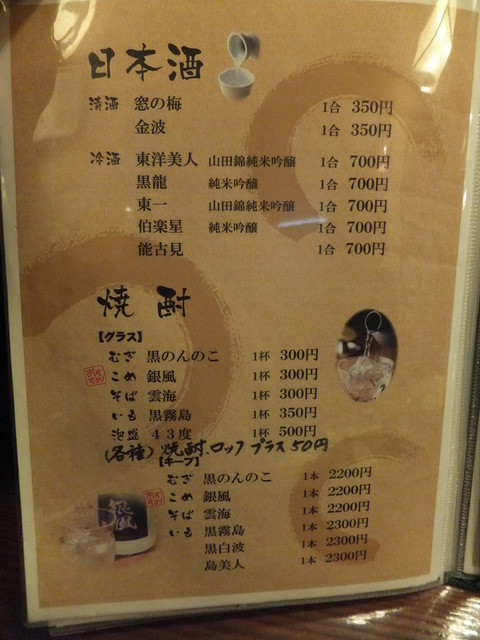 日本酒
清酒 窓の梅 1合 350円
金波 1合 350円
冷酒 東洋美人 山田錦純米吟醸 1合 700円
黒龍 純米吟醸 1合 700円
東一 山田錦純米吟醸 1合 700円
伯楽星 純米吟醸 1合 700円
能古見 1合 700円
焼酎
【グラス】
むぎ 黒のんのこ 1杯 300円
おすすめ こめ 銀風 1杯 300円
そば 雲海 1杯 300円
いも 黒霧島 1杯 350円
泡盛 43度 1杯 500円
(各種) 焼酎、ロック プラス 50円
【キープ】
むぎ 黒のんのこ 1本 2200円
おすすめ こめ 銀風 1本 2200円
そば 雲海 1本 2200円
いも 黒霧島 1本 2300円
黒白波 1本 2300円
島美人 1本 2300円
銀風